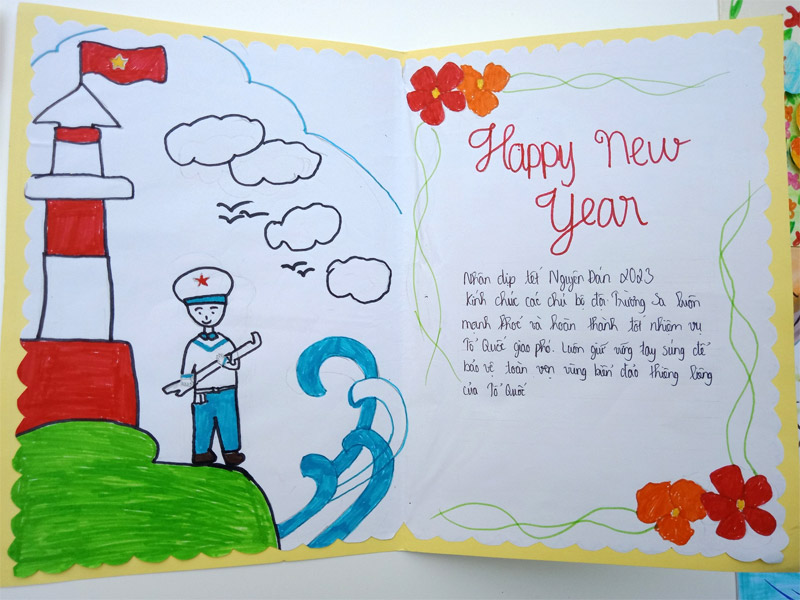 Happy New
Year
Nhân dịp tết Nguyên Đán 2023
Kính chúc các chú bộ đội Trường Sa luôn
mạnh khoẻ và hoàn thành tốt nhiệm vụ
Tổ Quốc giao phó. Luôn giữ vững tay súng để
bảo vệ toàn vẹn vùng biển đảo thiêng liêng
của Tổ Quốc